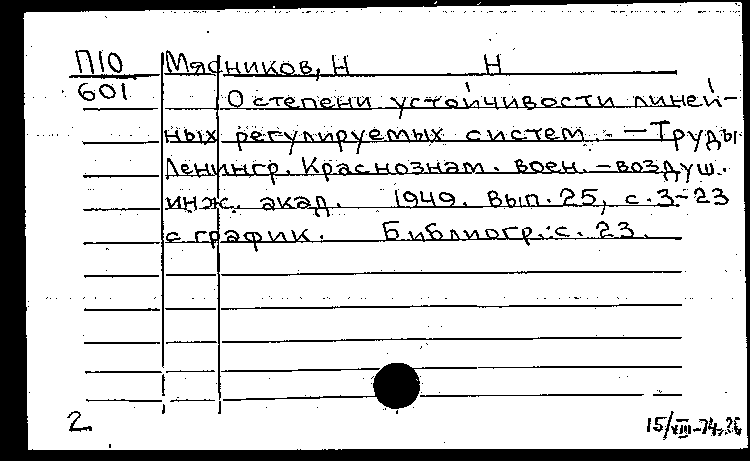 П10 Мясников, Н Н
601 О степени устойчивости линей-
ных регулируемых систем. - Труды
Ленингр. Краснознам. воен. - воздуш.
инж. акад. 1949. Вып. 25, с. 3-23
с график. Библиогр.: с. 23.
2. 15/VIII-74.